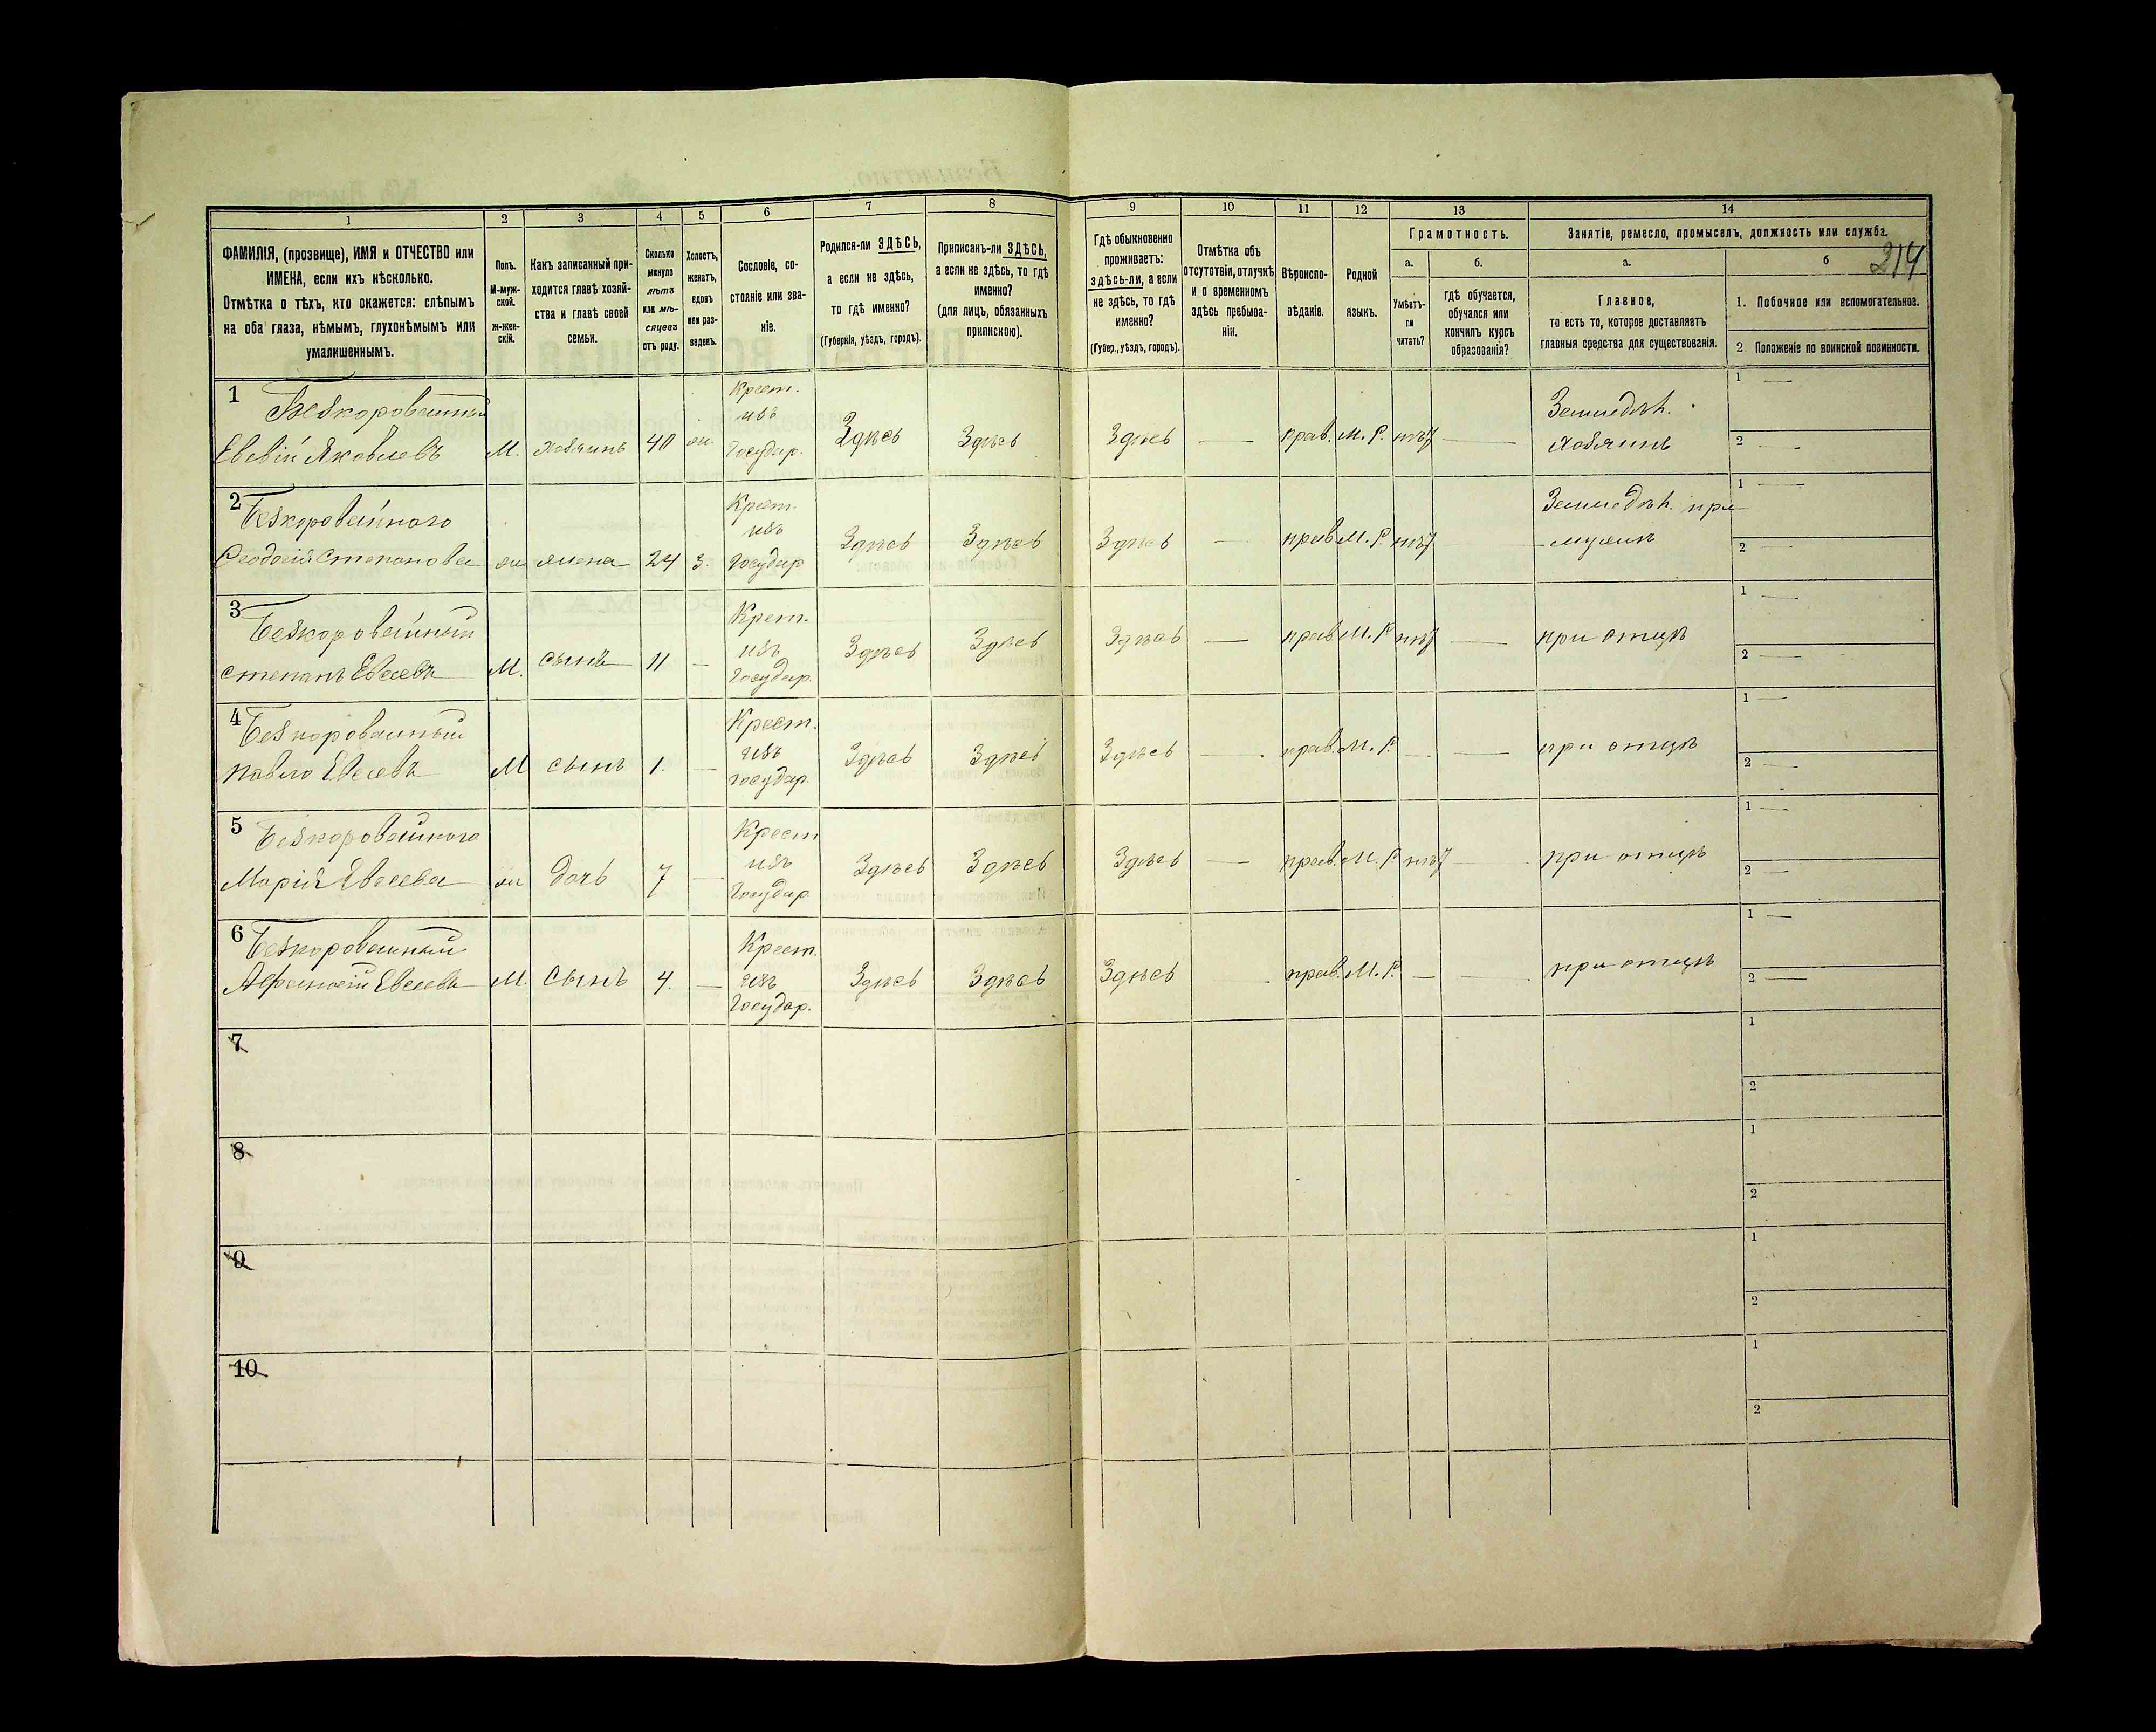 1
2
3
4
5
6
7
8
9
10
11
12
13
14
ФАМИЛІЯ, (прозвище), ИМЯ и ОТЧЕСТВО или
ИМЕНА, если ихъ нѣсколько.
Отмѣтка о тѣхъ, кто окажется: слѣпымъ
на оба глаза, нѣмымъ, глухонѣмымъ или
умалишеннымъ.
Полъ.
М-муж-
ской.
Ж-жен-
скій.
Какъ записанный при-
ходится главѣ хозяй-
ства и главѣ своей
семьи.
Сколько
минуло
лѣтъ
или мѣ-
сяцевъ
отъ роду.
Холостъ,
женатъ,
вдовъ
или раз-
веденъ.
Сословіе, со-
стояніе или зва-
ніе.
Родился-ли ЗДѢСЬ,
а если не здѣсь,
то гдѣ именно?
(Губернія, уѣздъ, городъ).
Приписанъ-ли ЗДѢСЬ,
а если не здѣсь, то гдѣ
именно?
(для лицъ, обязанныхъ
припискою).
Гдѣ обыкновенно
проживаетъ:
здѣсь-ли, а если
не здѣсь, то гдѣ
именно?
(Губер., уѣздъ, городъ).
Отмѣтка объ
отсутствіи, отлучкѣ
и о временномъ
здѣсь пребыва-
ніи.
Вѣроиспо-
вѣданіе.
Родной
языкъ.
Грамотность.
а.
Умѣетъ-
ли
читать?
б.
гдѣ обучается,
обучался или
кончилъ курсъ
образованія?
Занятіе, ремесло, промыселъ, должность или служба.
214
а.
Главное,
то есть то, которое доставляетъ
главныя средства для существованія.
б
1. Побочное или вспомогательное.
2 Положеніе по воинской повинности.
1
Безкоровайный
Евсѣй Яковлевъ
М. хозяинъ 40 ж.
Крест.
изъ
Государ.
Здѣсь Здѣсь Здѣсь — прав. М. Р. нѣт —
Земледѣл.
хозяинъ
1 —
2 —
2
Безкоровайного
Феодосія Степанова
ж жена 24 З.
Крест.
изъ
Государ
Здѣсь Здѣсь Здѣсь — прав М. Р. нѣт
Земледѣл. при
мужѣ
1 —
2 —
3
Безкоровайный
Степанъ Евсеевъ
М. сынъ 11 —
Крест.
изъ
Государ.
Здѣсь Здѣсь Здѣсь — прав М. Р нѣт —
при отцѣ
1 —
2 —
4
Безкоровайный
Павло Евсеевъ
М сынъ 1. —
Крест.
изъ
государ.
Здѣсь Здѣсь Здѣсь — прав. М. Р. — —
при отцѣ
1 —
2 —
5
Безкоровайного
Марія Евсеева
ж дочь 7 —
Крест
изъ
Государ.
Здѣсь Здѣсь Здѣсь — прав. М. Р нѣт —
при отцѣ
1 —
2 —
6
Безкоровайный
Афанасій Евсеевъ
М. сынъ 4. —
Крест.
изъ
Государ.
Здѣсь Здѣсь Здѣсь прав. М. Р. — —
при отцѣ
1 —
2 —
7
1
2
8
1
2
9
1
2
10
1
2